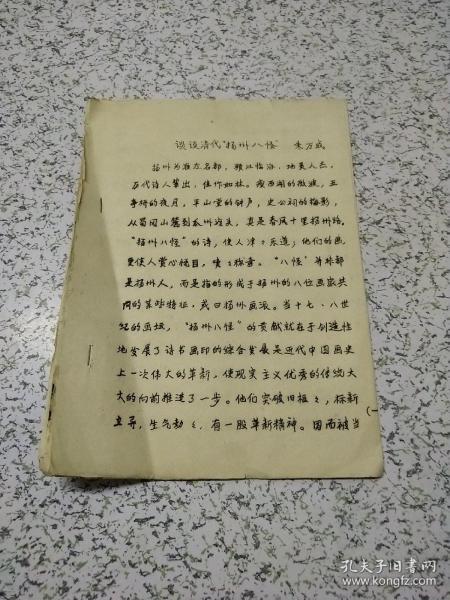 谈谈清代"扬州八怪" 朱万成
扬州为淮左名都，频江临海，地灵人杰，
历代诗人辈出，佳作如林。瘦西湖的微波，五
亭桥的夜月，平山堂的钟声，史公祠的梅影，
从蜀冈山麓到瓜州渡头，真是春风十里扬州路。
"扬州八怪"的诗，使人津々乐道；他们的画
更使人赏心悦目，啧々称奇。"八怪"并非都
是扬州人，而是指的形成于扬州的八位画家共
同的某些特征，或曰扬州画派。当十七、八世
纪的画坛，"扬州八怪"的贡献就在于创造性
地发展了诗书画印的综合发展是近代中国画史
上一次伟大的革新，使现实主义优秀的传统大
大的向前推进了一步。他们突破旧框々，标新
立异，生气勃々，有一股革新精神。因而被当
(一
孔夫子旧书网
www.kongfz.com